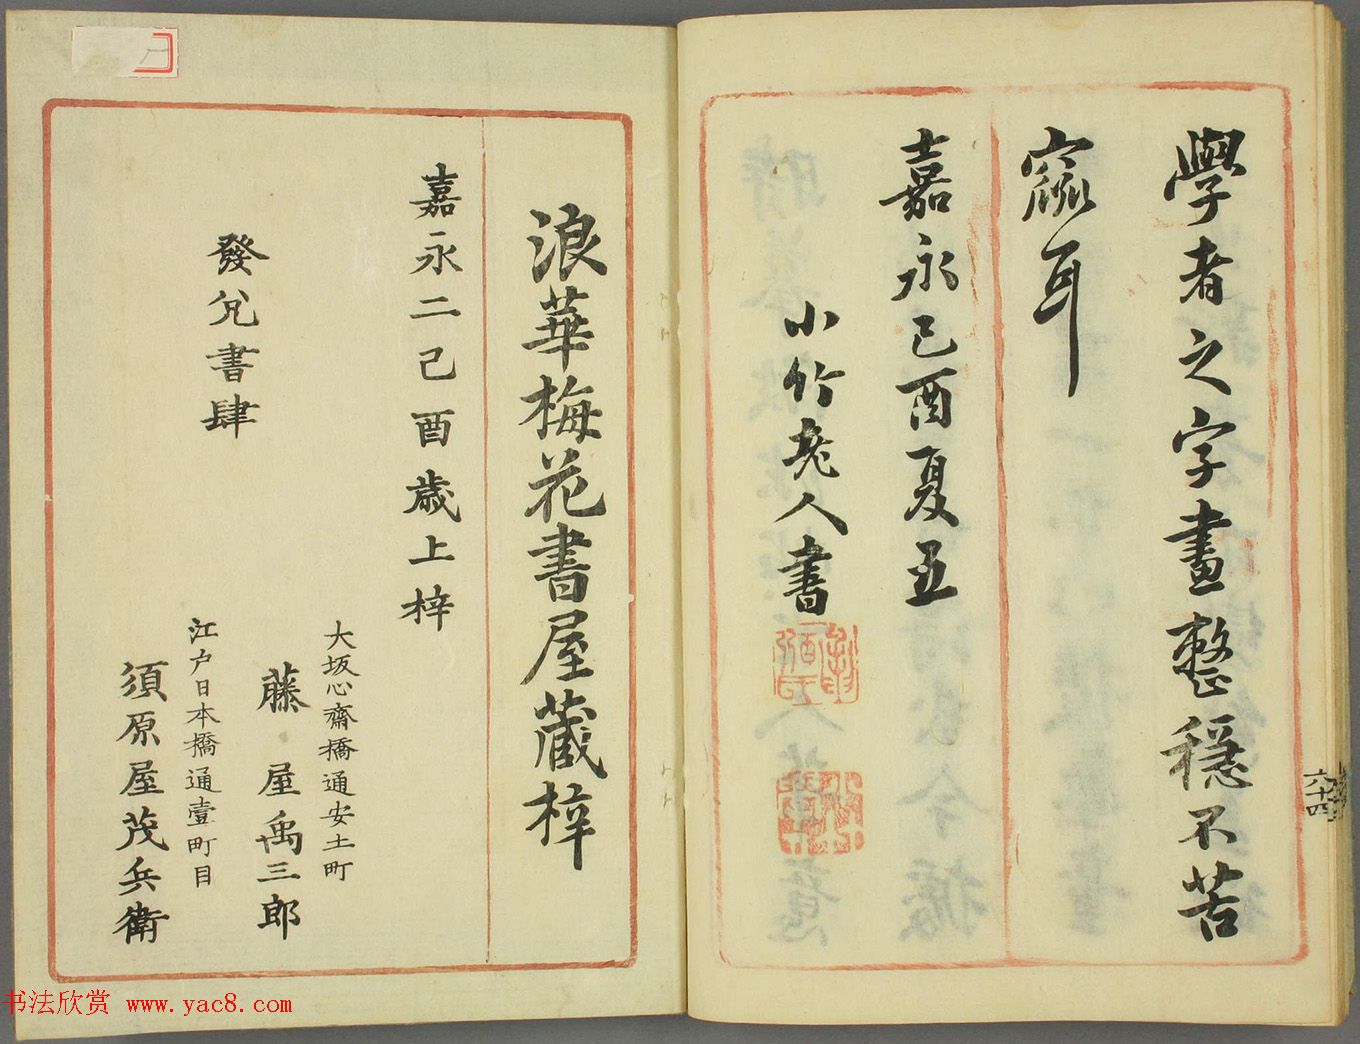 學者之字畫整穩不苦
窳耳
嘉永己酉夏五
小竹老人書
六十四
浪華梅花書屋蔵梓
嘉永二己酉歳上梓
發兌書肆
大坂心齋橋通安土町
藤屋禹三郎
江户日本橋通壹町目
須原屋茂兵衛
书法欣赏 www.yac8.com